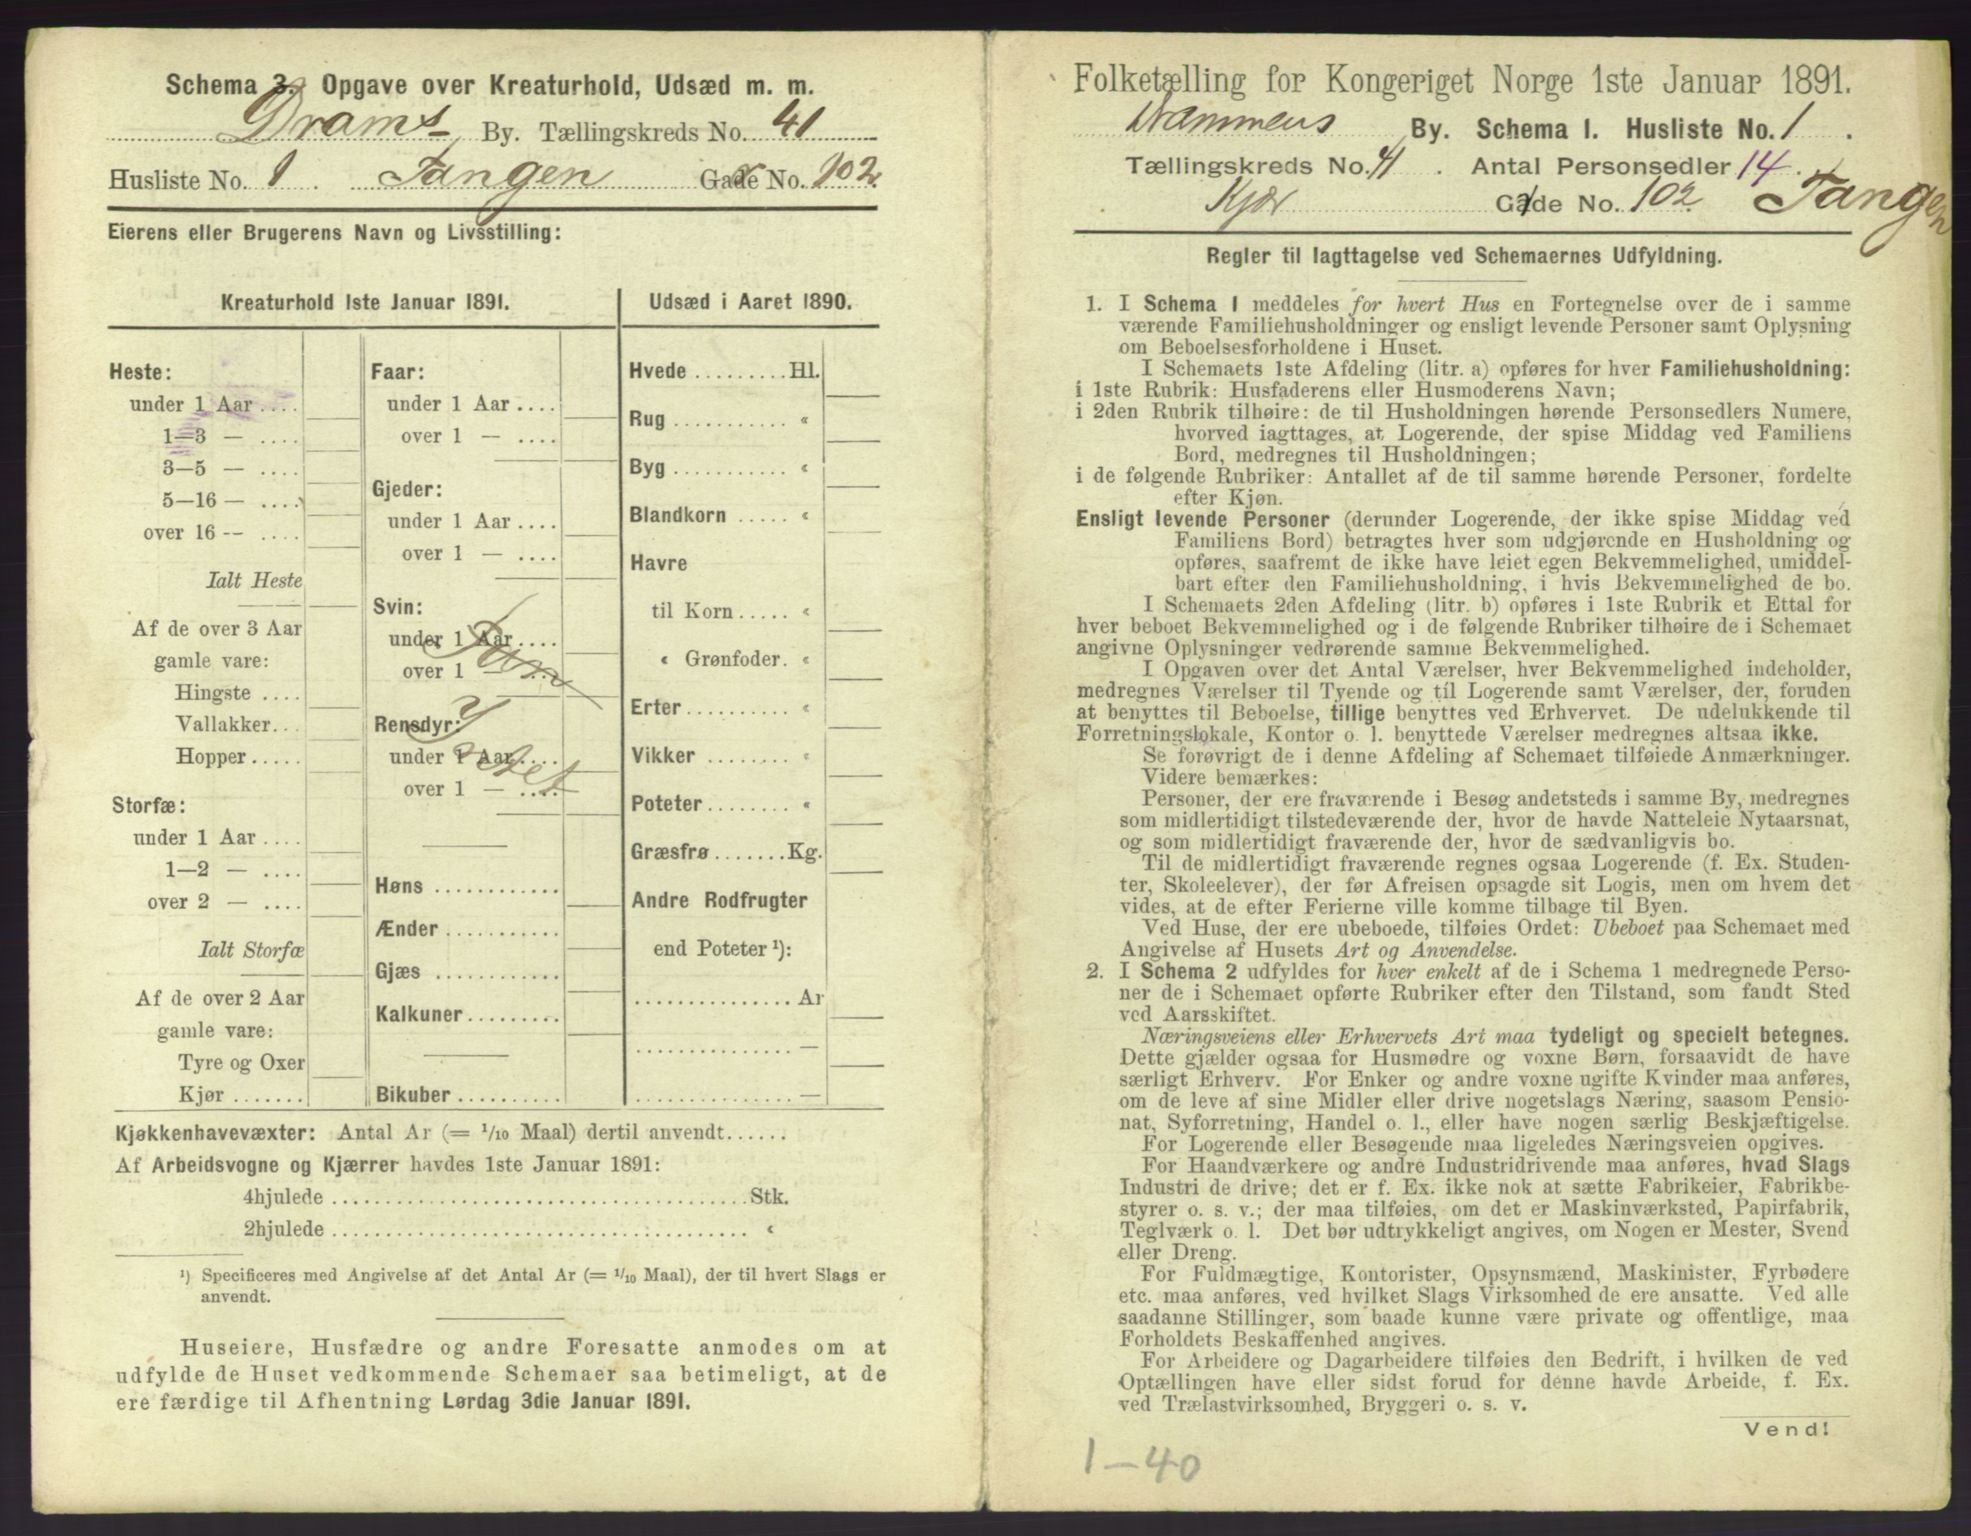 Schema 3. Opgave over Kreaturhold, Udsæd m. m.
Drams By. Tællingskreds No. 41
Husliste No. 1. Tangen Gade No. 102.
Eierens eller Brugerens Navn og Livsstilling:
Kreaturhold 1ste Januar 1891.
Heste:
under 1 Aar ....
1—3 — ....
3—5 — ....
5—16 — ....
over 16 — ....
Ialt Heste
Af de over 3 Aar
gamle vare:
Hingste ....
Vallakker...
Hopper .....
Storfæ:
under 1 Aar ....
1—2 — ....
over 2 — ....
Ialt Storfæ
Af de over 2 Aar
gamle vare:
Tyre og Oxer
Kjør .......
Faar:
under 1 Aar ....
over 1 — ....
Gjeder:
under 1 Aar ....
over 1 — ....
Svin:
under 1 Aar ....
over 1 — ....
Rensdyr:
under 1 Aar ....
over 1 — ....
Høns ............
Ænder ...........
Gjæs ............
Kalkuner.........
Bikuber ..........
Udsæd i Aaret 1890.
Hvede .........Hl.
Rug ........... «
Byg ........... «
Blandkorn ..... «
Havre
til Korn ..... «
« Grønfoder. «
Erter.......... «
Vikker ........ «
Poteter........ «
Græsfrø.......Kg.
Andre Rodfrugter
end Poteter ¹):
............... Ar
............... —
............... —
Kjøkkenhavevæxter: Antal Ar (= 1/10 Maal) dertil anvendt......
Af Arbeidsvogne og Kjærrer havdes 1ste Januar 1891:
4hjulede ........................................Stk.
2hjulede ........................................ «
¹) Specificeres med Angivelse af det Antal Ar (= 1/10 Maal), der til hvert Slags er
anvendt.
Huseiere, Husfædre og andre Foresatte anmodes om at
udfylde de Huset vedkommende Schemaer saa betimeligt, at de
ere færdige til Afhentning Lørdag 3die Januar 1891.
Folketælling for Kongeriget Norge 1ste Januar 1891.
Drammens By. Schema 1. Husliste No. 1.
Tællingskreds No. 41. Antal Personsedler 14.
Kjær Gade No. 102 Tangen
Regler til Iagttagelse ved Schemaernes Udfyldning.
1. I Schema 1 meddeles for hvert Hus en Fortegnelse over de i samme
værende Familiehusholdninger og ensligt levende Personer samt Oplysning
om Beboelsesforholdene i Huset.
I Schemaets 1ste Afdeling (litr. a) opføres for hver Familiehusholdning:
i 1ste Rubrik: Husfaderens eller Husmoderens Navn;
i 2den Rubrik tilhøire: de til Husholdningen hørende Personsedlers Numere,
hvorved iagttages, at Logerende, der spise Middag ved Familiens
Bord, medregnes til Husholdningen;
i de følgende Rubriker: Antallet af de til samme hørende Personer, fordelte
efter Kjøn.
Ensligt levende Personer (derunder Logerende, der ikke spise Middag ved
Familiens Bord) betragtes hver som udgjørende en Husholdning og
opføres, saafremt de ikke have leiet egen Bekvemmelighed, umiddel-
bart efter den Familiehusholdning, i hvis Bekvemmelighed de bo.
I Schemaets 2den Afdeling (litr. b) opføres i 1ste Rubrik et Ettal for
hver beboet Bekvemmelighed og i de følgende Rubriker tilhøire de i Schemaet
angivne Oplysninger vedrørende samme Bekvemmelighed.
I Opgaven over det Antal Værelser, hver Bekvemmelighed indeholder,
medregnes Værelser til Tyende og til Logerende samt Værelser, der, foruden
at benyttes til Beboelse, tillige benyttes ved Erhvervet. De udelukkende til
Forretningslokale, Kontor o. l. benyttede Værelser medregnes altsaa ikke.
Se forøvrigt de i denne Afdeling af Schemaet tilføiede Anmærkninger.
Videre bemærkes:
Personer, der ere fraværende i Besøg andetsteds i samme By, medregnes
som midlertidigt tilstedeværende der, hvor de havde Natteleie Nytaarsnat,
og som midlertidigt fraværende der, hvor de sædvanligvis bo.
Til de midlertidigt fraværende regnes ogsaa Logerende (f. Ex. Studen-
ter, Skoleelever), der før Afreisen opsagde sit Logis, men om hvem det
vides, at de efter Ferierne ville komme tilbage til Byen.
Ved Huse, der ere ubeboede, tilføies Ordet: Ubeboet paa Schemaet med
Angivelse af Husets Art og Anvendelse.
2. I Schema 2 udfyldes for hver enkelt af de i Schema 1 medregnede Perso-
ner de i Schemaet opførte Rubriker efter den Tilstand, som fandt Sted
ved Aarsskiftet.
Næringsveiens eller Erhvervets Art maa tydeligt og specielt betegnes.
Dette gjælder ogsaa for Husmødre og voxne Børn, forsaavidt de have
særligt Erhverv. For Enker og andre voxne ugifte Kvinder maa anføres,
om de leve af sine Midler eller drive nogetslags Næring, saasom Pensio-
nat, Syforretning, Handel o. l., eller have nogen særlig Beskjæftigelse.
For Logerende eller Besøgende maa ligeledes Næringsveien opgives.
For Haandværkere og andre Industridrivende maa anføres, hvad Slags
Industri de drive; det er f. Ex. ikke nok at sætte Fabrikeier, Fabrikbe-
styrer o. s. v.; der maa tilføies, om det er Maskinværksted, Papirfabrik,
Teglværk o. l. Det bør udtrykkeligt angives, om Nogen er Mester, Svend
eller Dreng.
For Fuldmægtige, Kontorister, Opsynsmænd, Maskinister, Fyrbødere
etc. maa anføres, ved hvilket Slags Virksomhed de ere ansatte. Ved alle
saadanne Stillinger, som baade kunne være private og offentlige, maa
Forholdets Beskaffenhed angives.
For Arbeidere og Dagarbeidere tilføies den Bedrift, i hvilken de ved
Optællingen have eller sidst forud for denne havde Arbeide, f. Ex.
ved Trælastvirksomhed, Bryggeri o. s. v.
Vend!
1-40